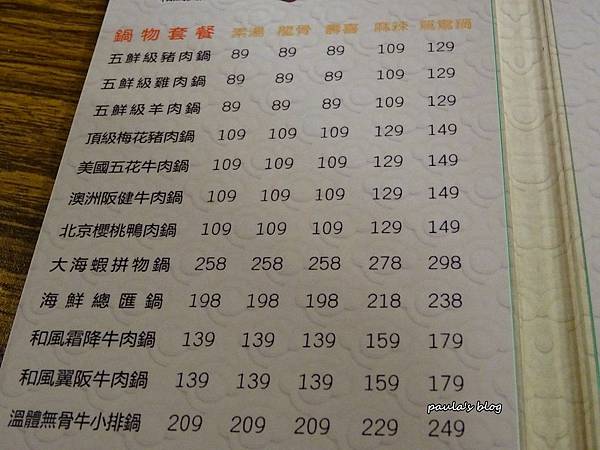 鍋物套餐 素湯 龍骨 壽喜 麻辣 鴛鴦鍋
五鮮級豬肉鍋 89 89 89 109 129
五鮮級雞肉鍋 89 89 89 109 129
五鮮級羊肉鍋 89 89 89 109 129
頂級梅花豬肉鍋 109 109 109 129 149
美國五花牛肉鍋 109 109 109 129 149
澳洲阪健牛肉鍋 109 109 109 129 149
北京櫻桃鴨肉鍋 109 109 109 129 149
大海蝦拼物鍋 258 258 258 278 298
海鮮總匯鍋 198 198 198 218 238
和風霜降牛肉鍋 139 139 139 159 179
和風翼阪牛肉鍋 139 139 139 159 179
溫體無骨牛小排鍋 209 209 209 229 249
paula's blog